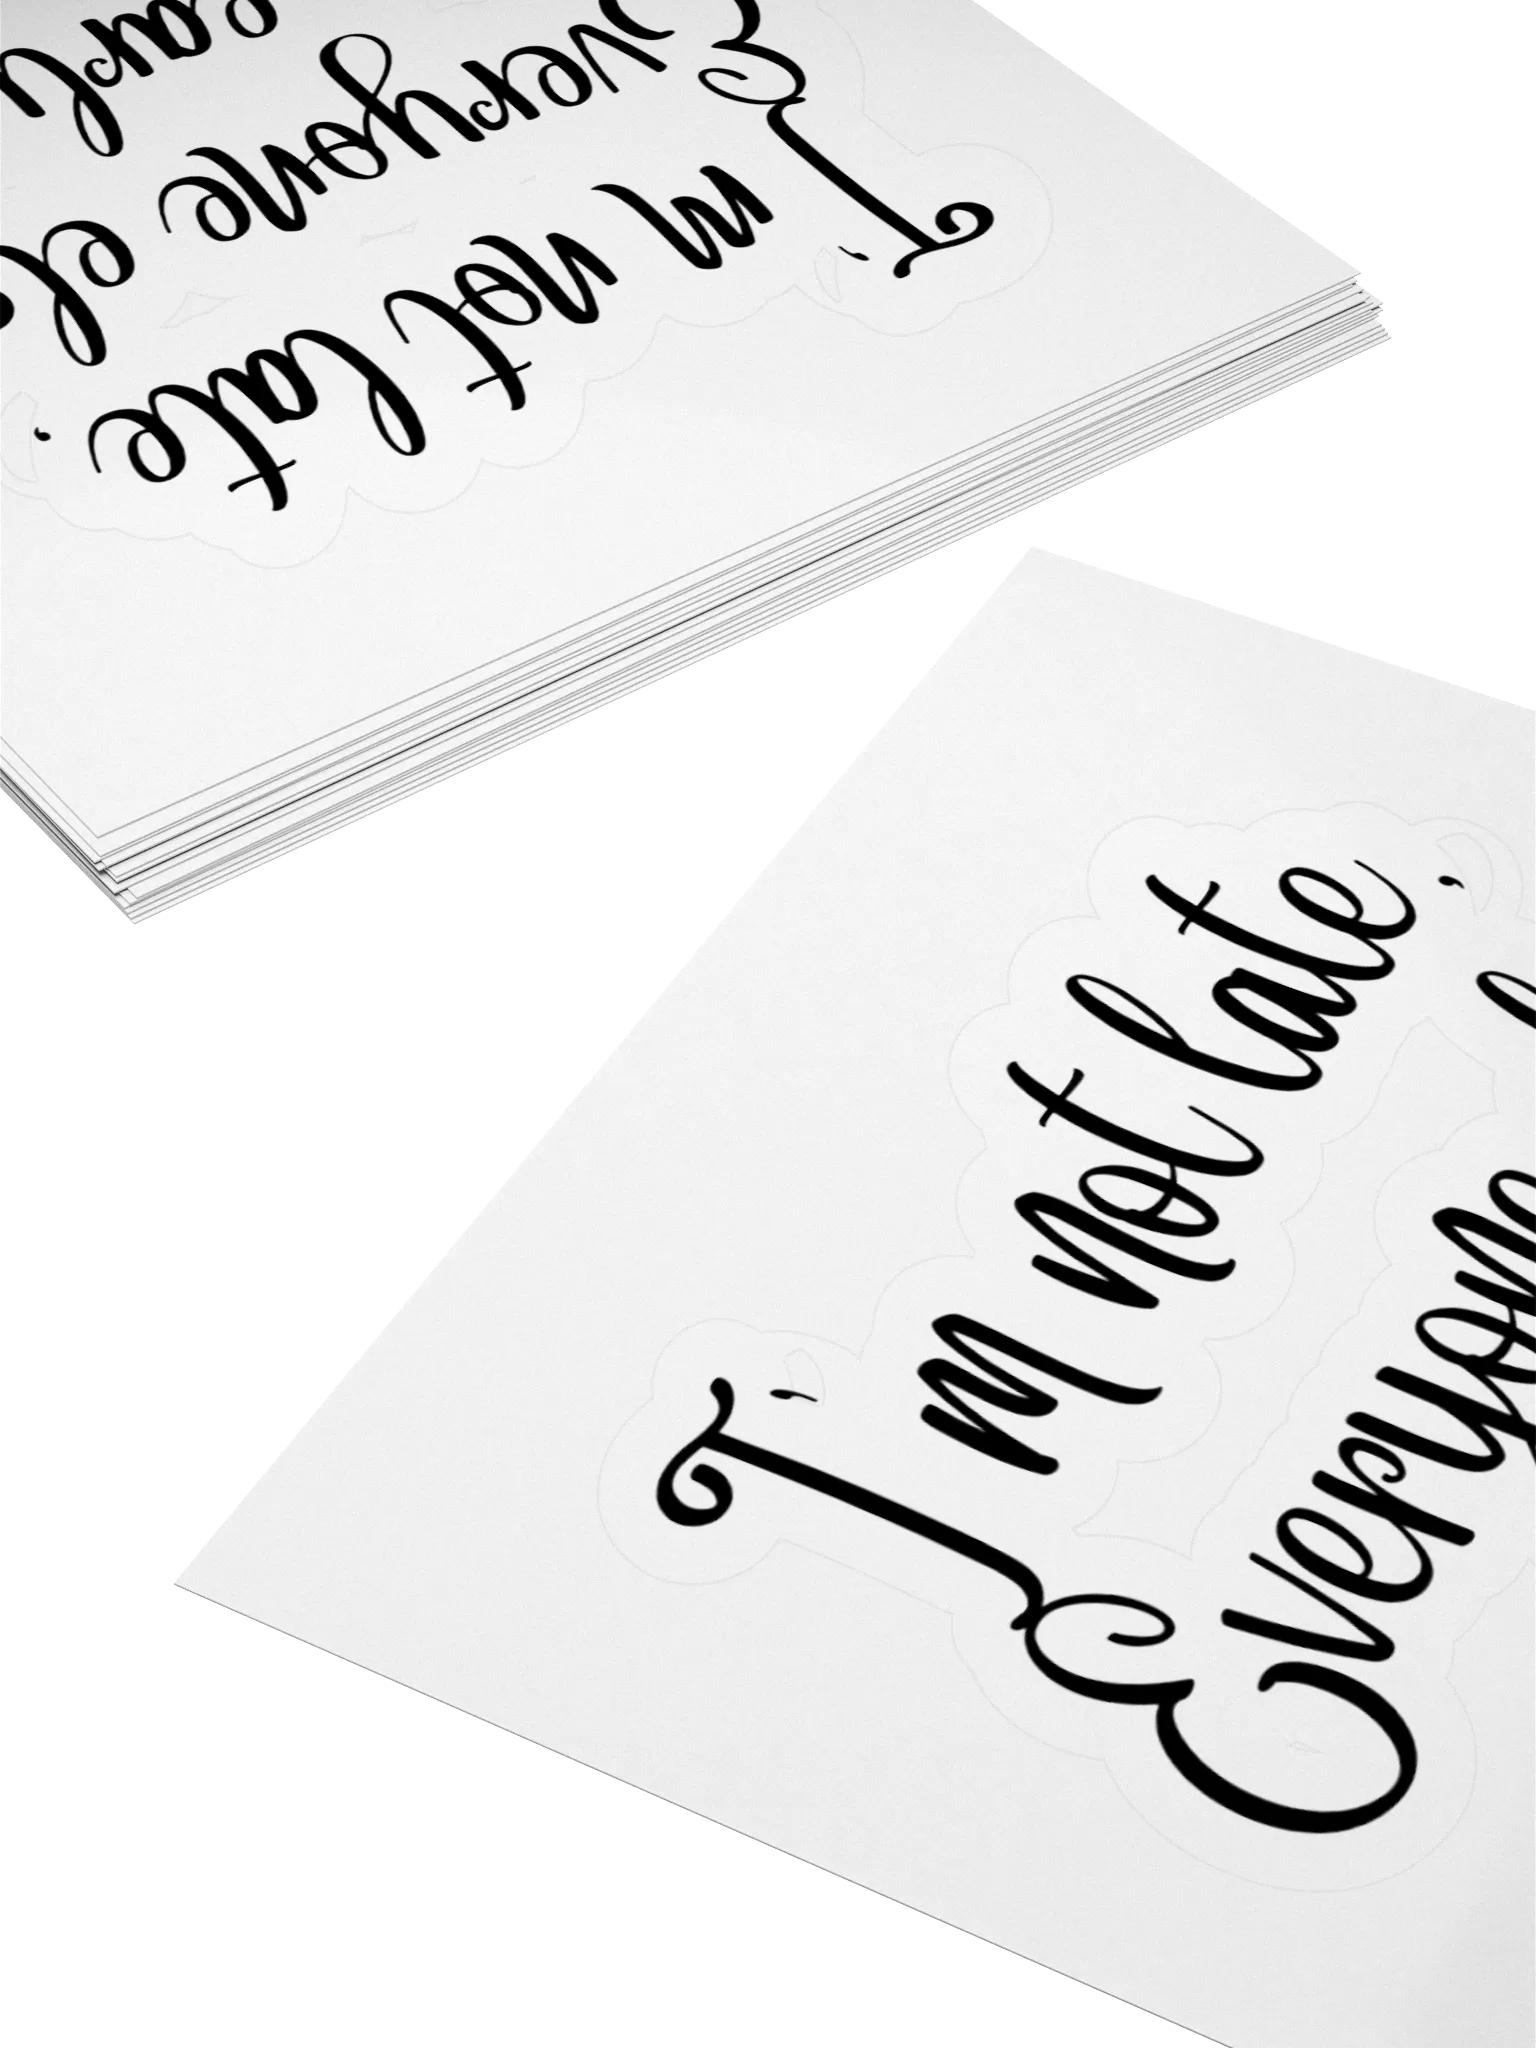 I'm not late,
Everyone
I'm not late,
Everyone